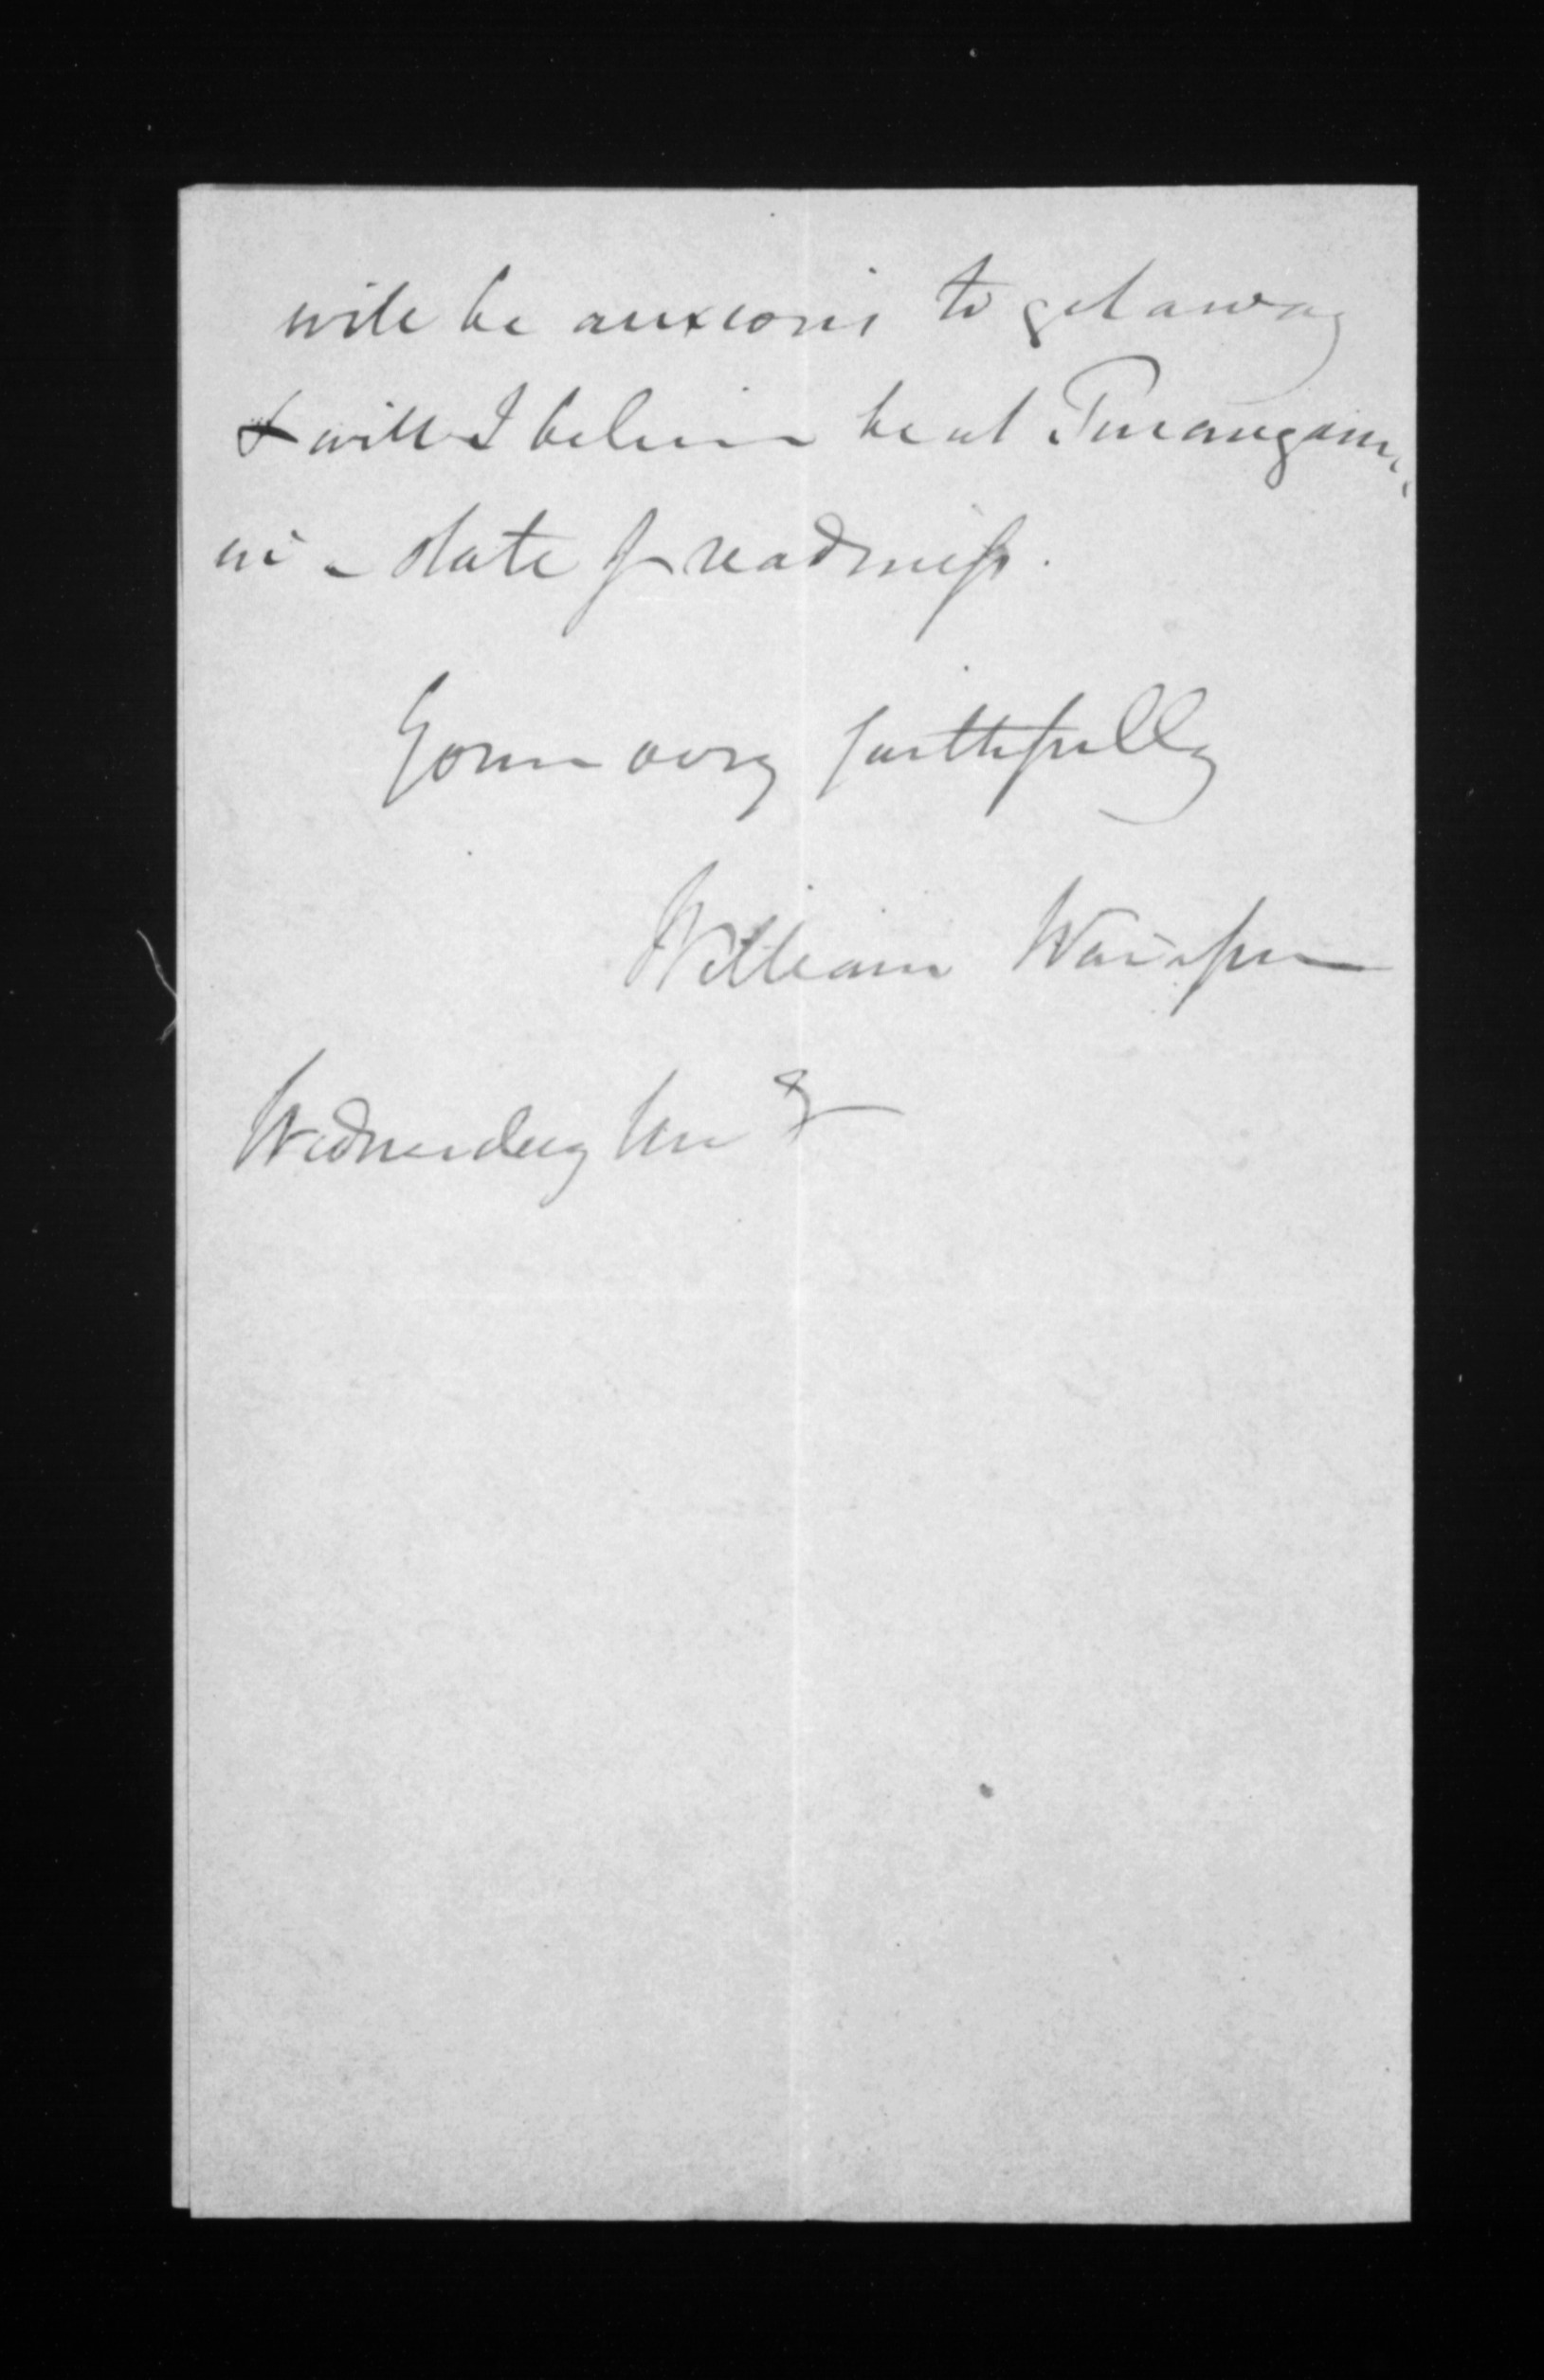 will be anxious to get away
& will I believe be at Turanganui
in a state of readiness.
Yours very faithfully
William Waiapu
Wednesday